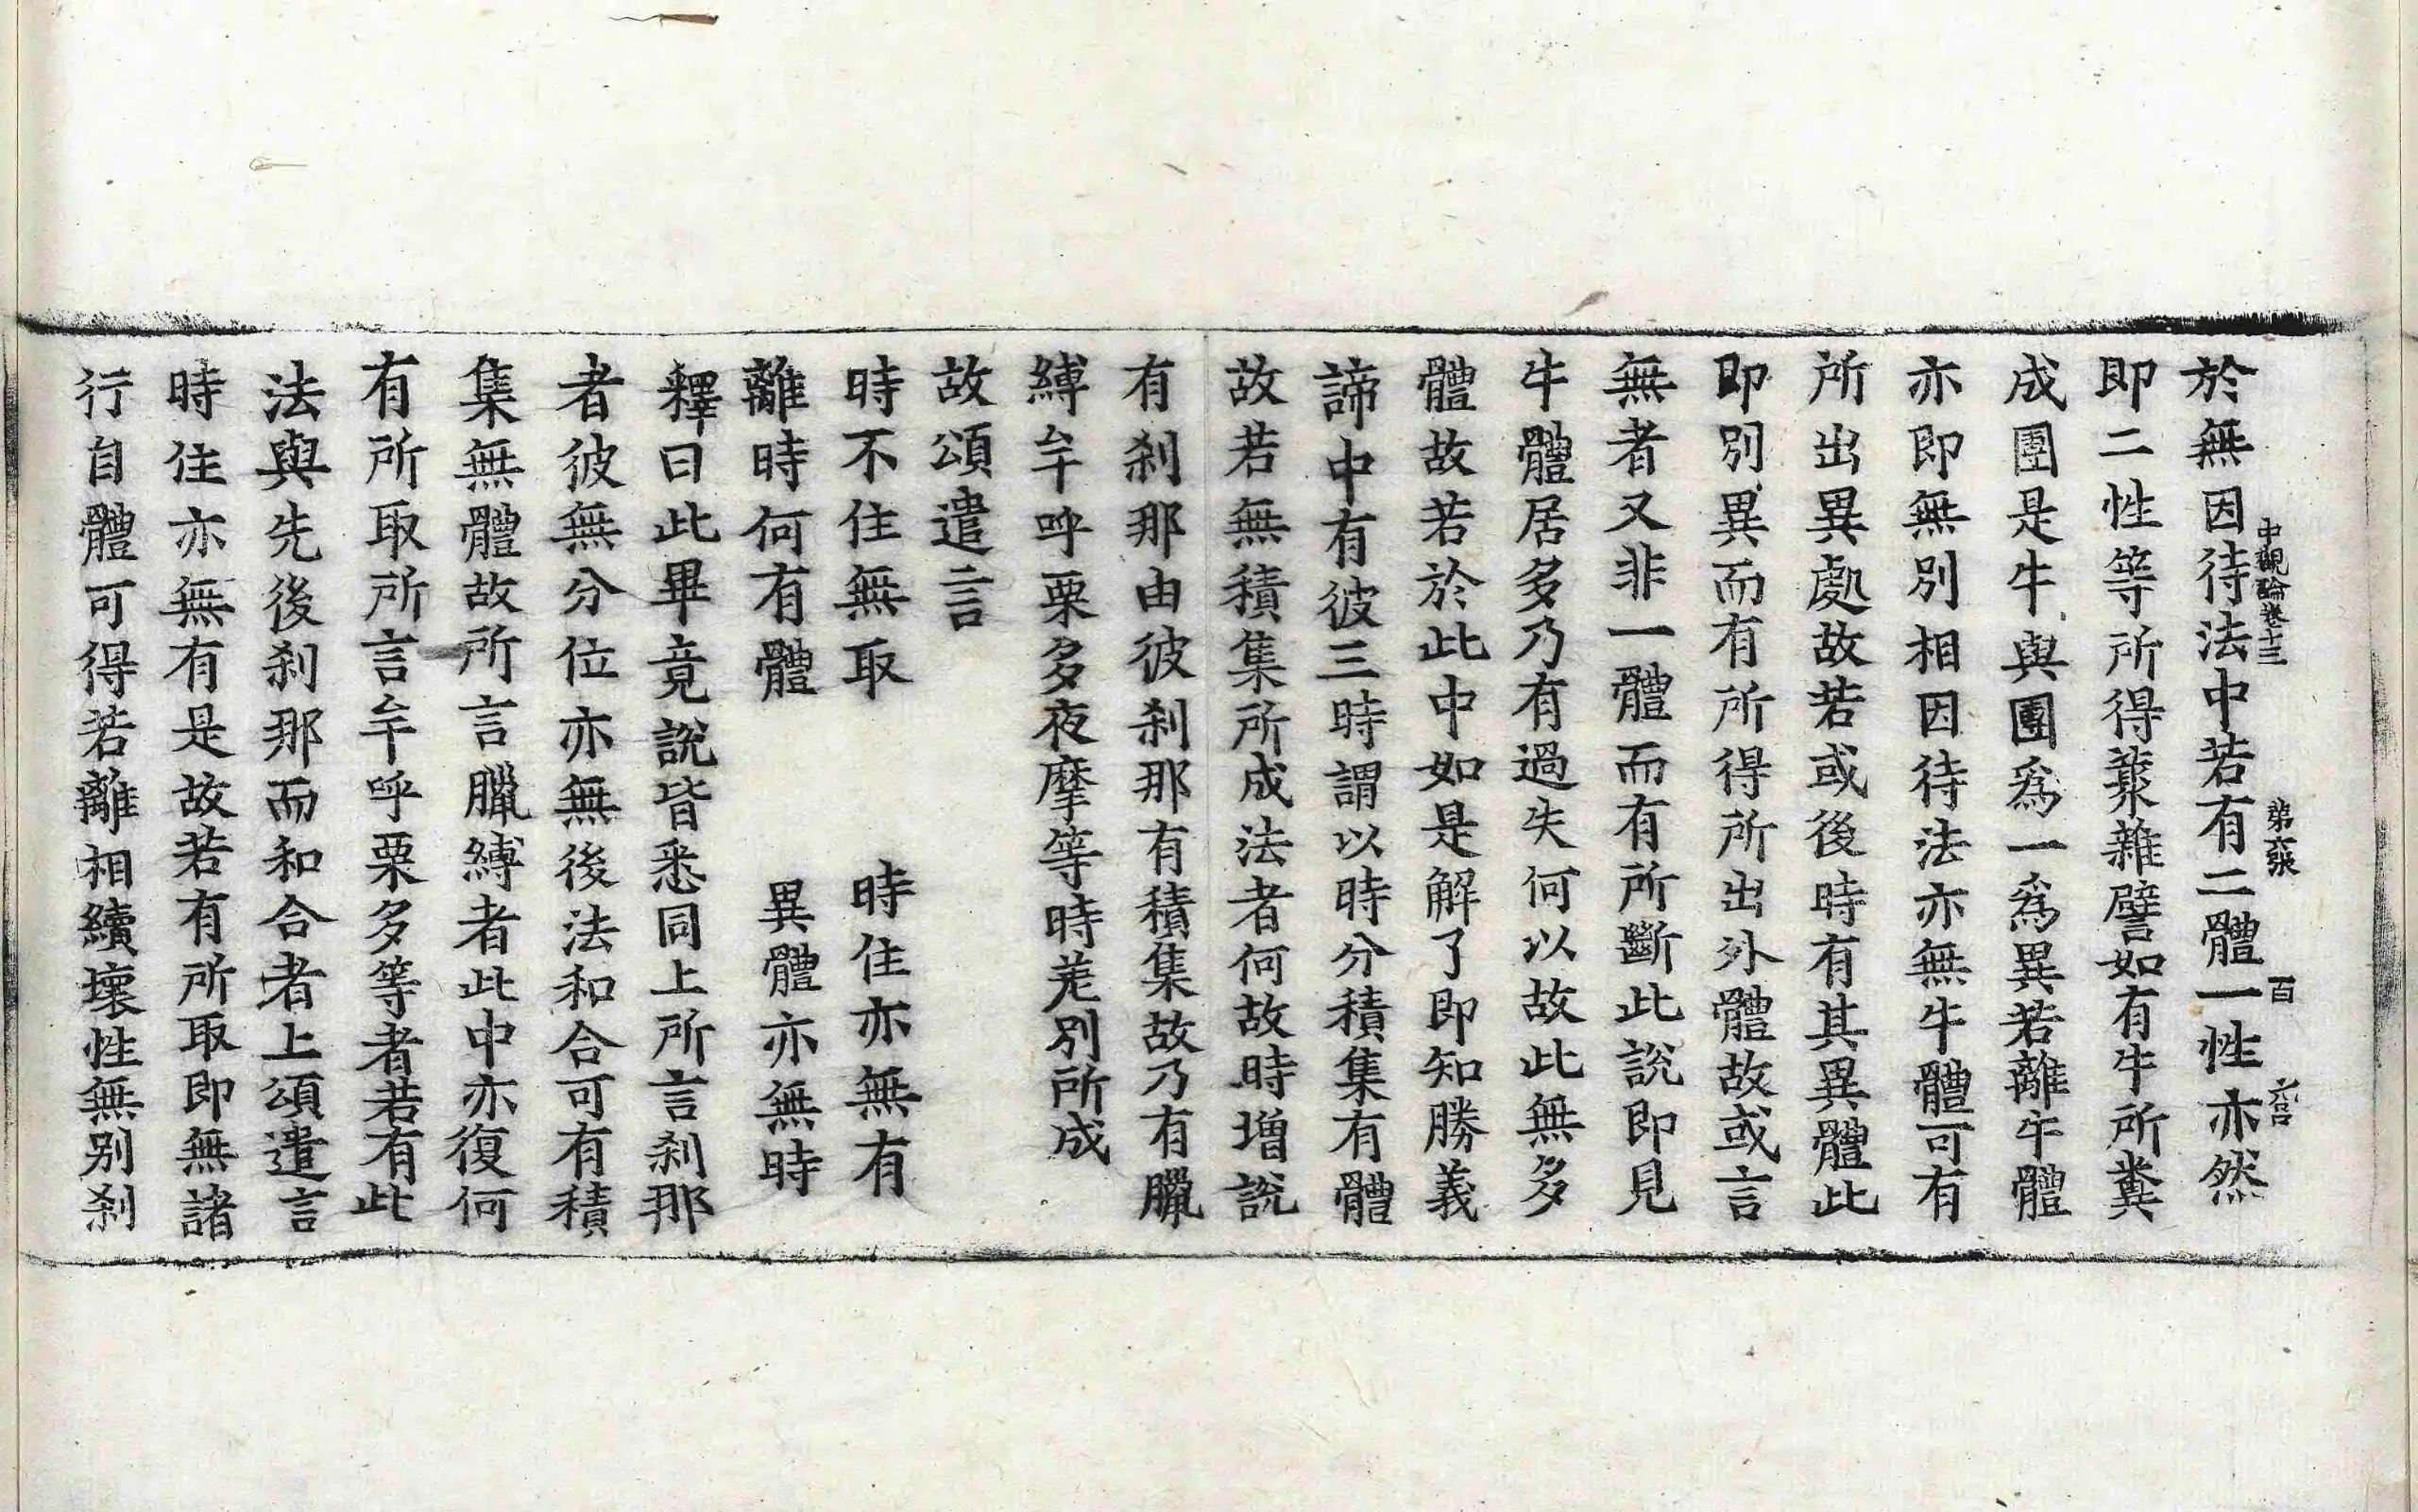 中觀論卷十三 第六張 百 六呂
於無因待法中若有二體一性亦然
即二性等所得蘂雜譬如有牛所糞
成團是牛與團爲一爲異若離牛體
亦即無別相因待法亦無牛體可有
所出異處故若或後時有其異體此
即別異而有所得所出外體故或言
無者又非一體而有所斷此說即見
牛體居多乃有過失何以故此無多
體故若於此中如是解了即知勝義
諦中有彼三時謂以時分積集有體
故若無積集所成法者何故時增說
有剎那由彼剎那有積集故乃有臘
縛牟呼栗多夜摩等時差別所成
故頌遣言
時不住無取 時住亦無有
離時何有體 異體亦無時
釋曰此畢竟說皆悉同上所言剎那
者彼無分位亦無後法和合可有積
集無體故所言臘縛者此中亦復何
有所取所言牟呼栗多等者若有此
法與先後剎那而和合者上頌遣言
時住亦無有是故若有所取即無諸
行自體可得若離相續壞性無別剎